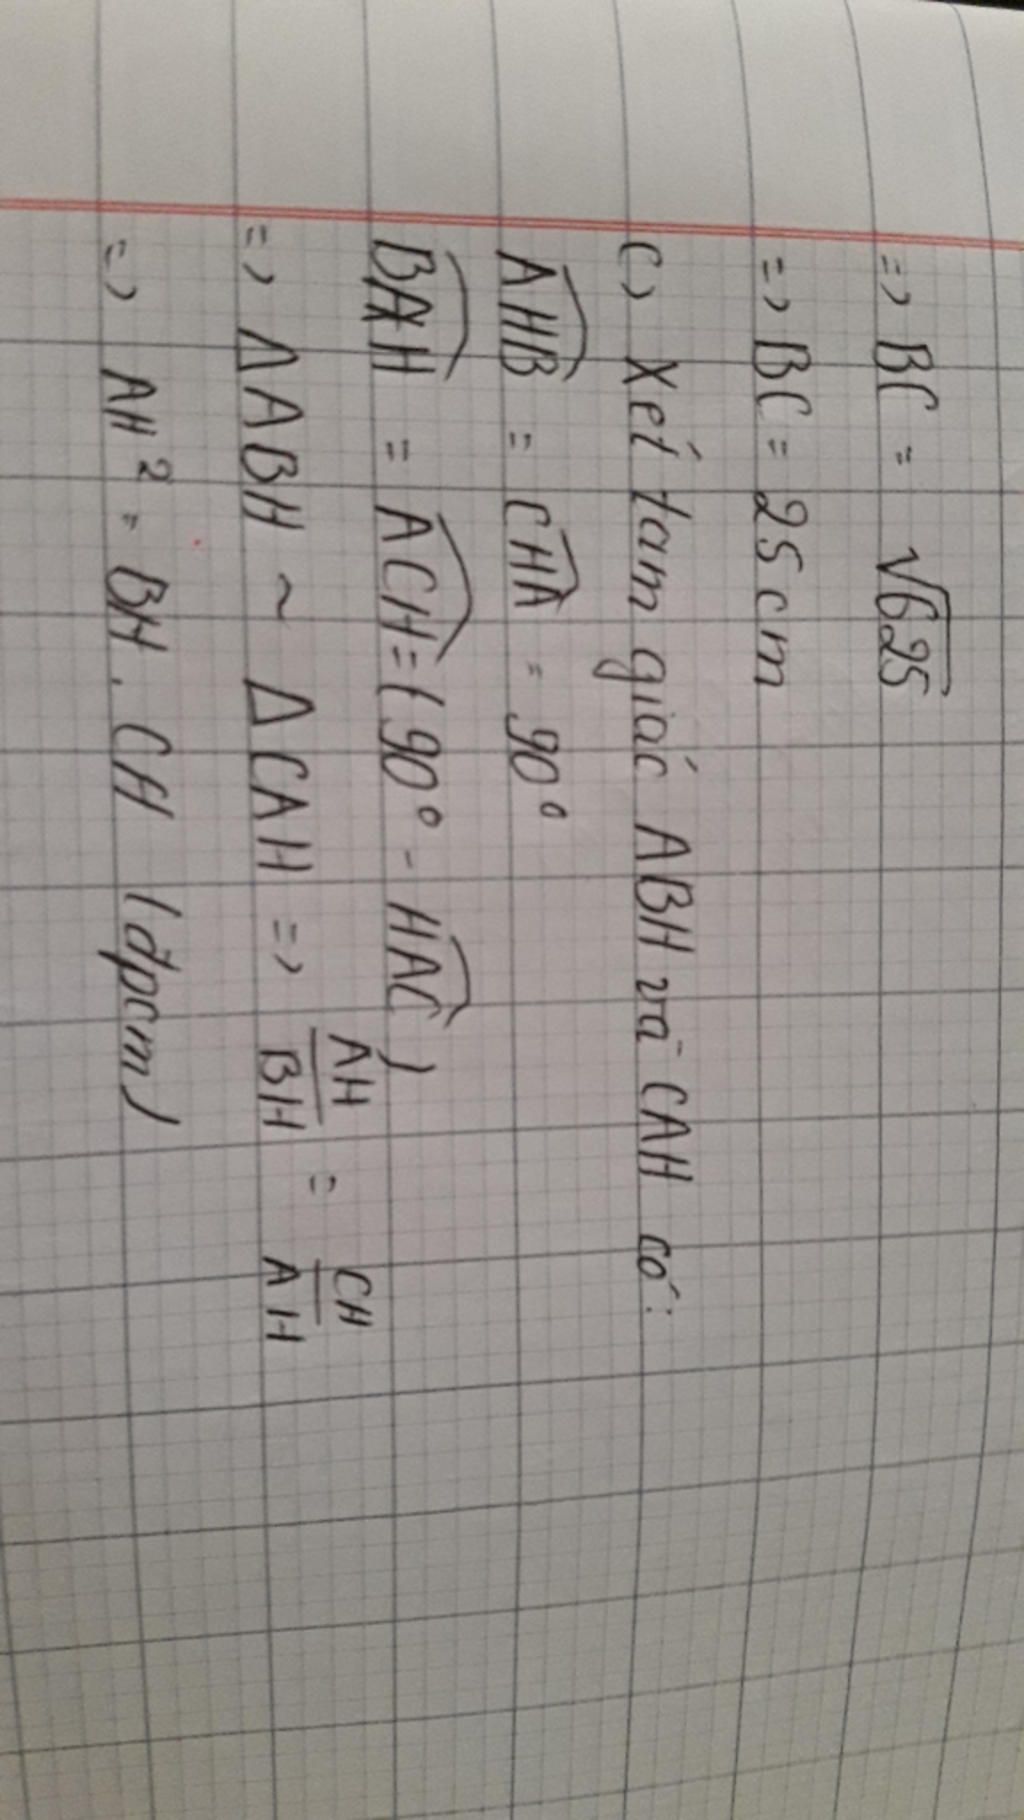 => BC = √625
=> BC = 25cm
C) Xét tam giác ABH và CAH có:
AHB = CHA = 90°
BAH = ACH = (90° - HAC)
=> ΔABH ~ ΔCAH => AH/BH = CH/AH
=> AH² = BH . CH (đpcm)